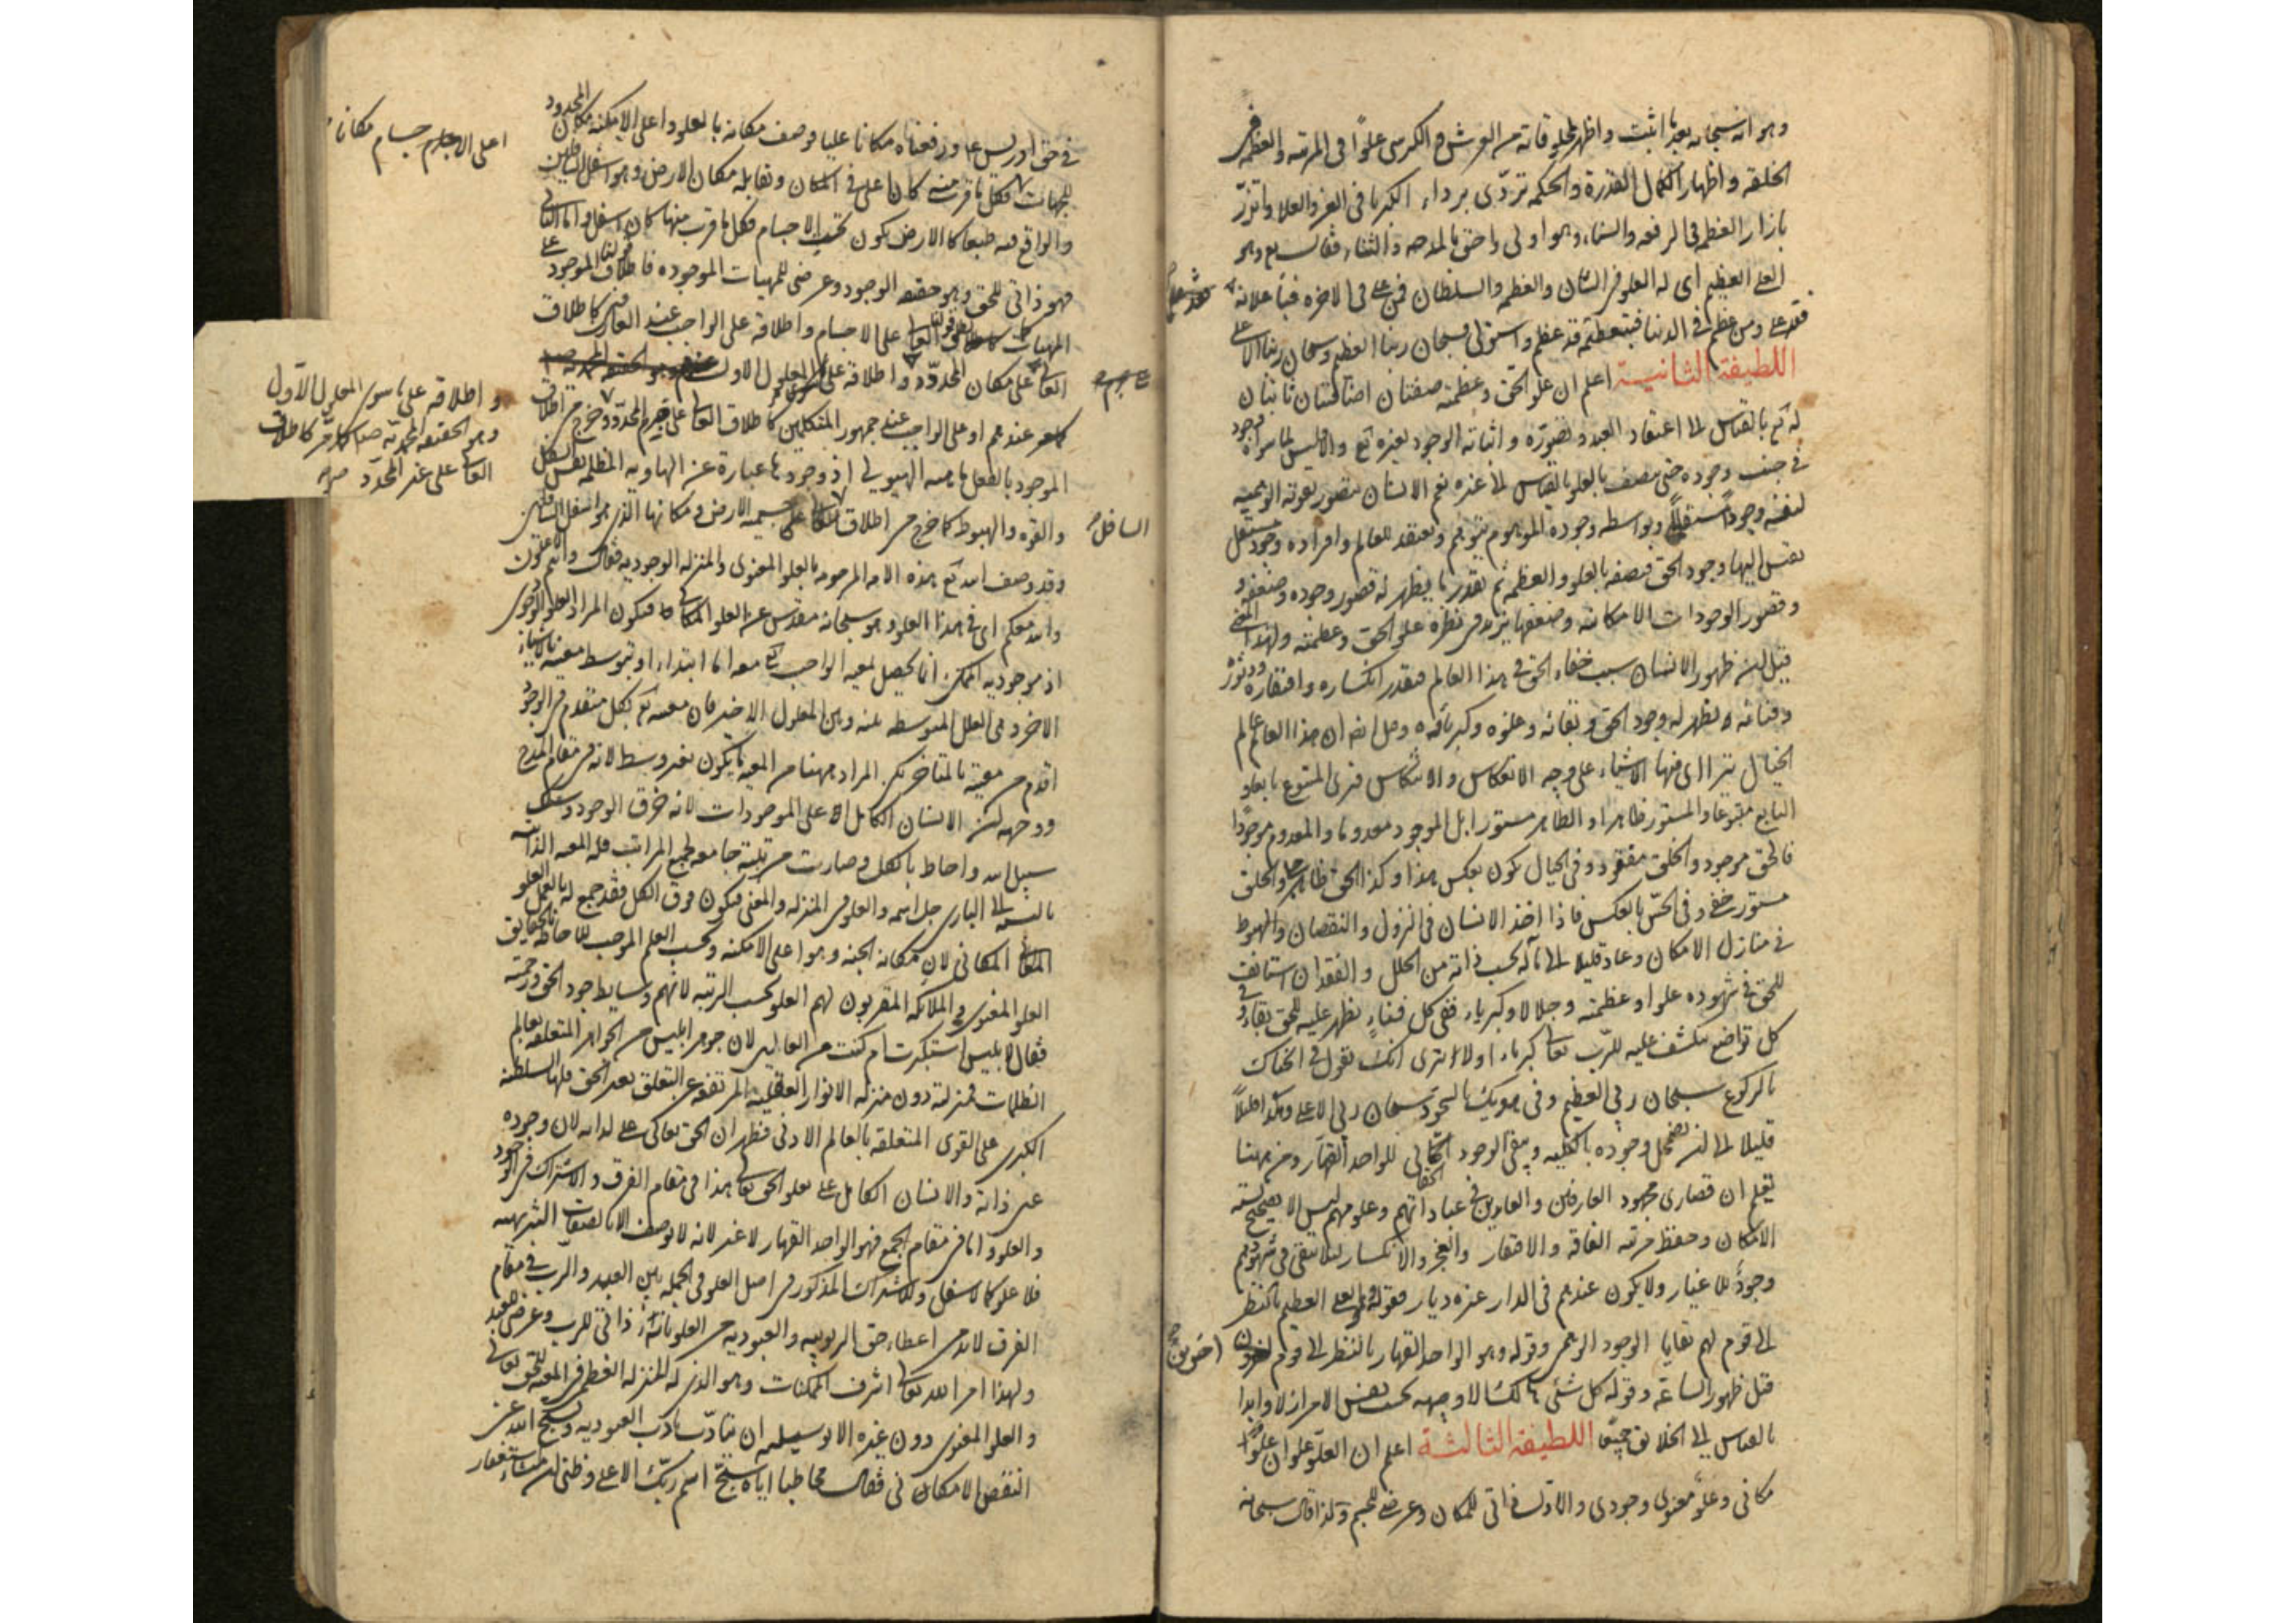 وهو انه سبحانه بعد ما اثبت واظهر لمخلوقاته من العرش والكرسى علوًا فى المرتبه والعظم فى
الخلقه واظهار الكمال القدرة والحكمه تردّى برداء الكبريا فى العز والعلا واتزر
بازار العظمه فى الرفعه والسناء وهو اولى واحق بالمدحه والثناء فقال تع وهو
العلى العظيم اى له العلو فى الشان والعظمه والسلطان فمن على فى الاخره فباعلائه
فقد على ومن عظم فى الدنيا فبتعظيمه قد عظم واستولى فسبحان ربنا العظيم وسبحان ربنا الاعلى
اللطيفة الثانية اعلم ان علو الحق وعظمته صفتان اضافيتان ثابتتان
له تع بالقياس الى اعتقاد العبد وتصوّره واثباته الوجود لغيره تع والا فليس لما سواه وجود
فى جنب وجوده حتى يتصف بالعلو بالقياس الى غيره نعم الانسان يتصور بقوته الوهميه
لنفسه وجودًا مستقلًا وبواسطه وجوده الموهوم يتوهم ويعتقد للعالم وافراده وجود مستقل
يقيس اليها وجود الحق فيصفه بالعلو والعظمه ثم بقدر ما يظهر له قصور وجوده وضعفه و
وقصور الوجودات الامكانيه وضعفها يزيد فى نظره علو الحق وعظمته ولهذا المعنى
قيل ان ظهور الانسان سبب خفاء الحق فى هذا العالم فبقدر انكساره وافتقاره ودثوره
وفنائه يظهر له وجود الحق وبقائه وعلوه وكبريائه وقيل ايضا ان هذا العالم عالم
الخيال يتراءى فيها الاشياء على وجه الانعكاس والانتكاس فيرى المتبوع تابعا و
التابع متبوعا والمستور ظاهرا والظاهر مستورا بل الموجود معدوما والمعدوم موجودًا
فالحق موجود والخلق مفقود وفى الخيال يكون بعكس هذا وكذا الحق ظاهر جلى والخلق
مستور خفى وفى الحس بالعكس فاذا اخذ الانسان فى النزول والنقصان والهبوط
فى منازل الامكان وعاد قليلا الى ماله بحسب ذاته من الخلل والفقدان استانف
للحق فى شهوده علوا وعظمته وجلالا وكبرياء ففى كل فناءٍ يظهر عليه للحق بقاء وفى
كل تواضع ينكشف عليه للرب تعالى كبرياء اولا ترى انك تقول فى انحنائك
بالركوع سبحان ربى العظيم وفى هويك بالسجود سبحان ربى الاعلى وهكذا قليلًا
قليلا الى ان يضمحل وجوده بالكليه ويبقى الوجود الحقانى للواحد القهار ومن ههنا
يعلم ان قصارى مجهود العارفين والعابدين فى عباداتهم وعلومهم ليس الا تصحيح نسبته
الامكان وحفظ مرتبه الفاقه والافتقار والعجز والانكسار لئلا يبقى فى شهودهم
وجودٌ للاغيار ولا يكون عندهم فى الدار غيره ديار فقوله وهو العلى العظيم بالنظر
الى قوم لهم بقايا الوجود الوهمى وقوله وهو الواحد القهار بالنظر الى قوم اخرين
قبل ظهور الساعة وقوله كل شئى هالك الا وجهه بحسب نفس الامر ازلا وابدا
بالقياس الى الخلائق جميعًا اللطيفة الثالثة اعلم ان العلوّ علوان علوّ
مكانى وعلوّ معنوى وجودى والاول ذاتى للمكان وعرضى للجسم ولذا قال سبحانه
فى حق ادريس ع ورفعناه مكانا عليا وصف مكانه بالعلو واعلى الامكنه مكان المحدود
للجهات فكل ما قرب منه كان اعلى فى المكان ويقابله مكان الارض وهو اسفل السافلين
والواقع فيه طبعا كالارض يكون تحت الاجسام فكل ما قرب منها كان اسفل واما الثانى
فهو ذاتى للحق وهو حقيقه الوجود وعرضى للمهيات الموجوده فاطلاق الموجود على
المهيات كاطلاق العالى على الاجسام واطلاقه على الواجب عند العارفين كاطلاق
العالى على مكان المحدّد واطلاقه على المعلول الاول
عندهم او على الواجب عند جمهور المتكلمين كاطلاق العالى على جرم المحدد وخرج من اطلاق
الموجود بالفعل ماهيه الهيولى اذ وجودها عبارة عن الهاويه المظلمه
والقوه والهبوط كما خرج من اطلاق العالى على جسميه الارض ومكانها الذى هو اسفل السافلين
وقد وصف الله تع هذه الامه المرحومه بالعلو المعنوى والمنزله الوجوديه فقال وانتم الاعلون
والله معكم اى فى هذا العلو وهو سبحانه مقدس عن العلو المكانى فيكون المراد العلو الوجودى
اذ موجوديه الممكن انما يحصل لمعيه الواجب تع معه اما ابتداء او بتوسط معيته بالاشياء
الاخر وهى العلل المتوسطه بينه وبين المعلول الاخير فان معيته تع بكل متقدم فى الوجود
اقدم من معيته بالمتاخر لكن المراد ههنا من المعيه ما يكون بغير وسط لانه فى مقام المدح
ووجهه ان الانسان الكامل اعلى الموجودات لانه خرق الوجود وسلك
سبيل الله واحاط بالكل وصارت مرتبته جامعه لجميع المراتب فله المعيه الذاتيه
بالنسبه الى البارى جل اسمه والعلو فى المنزله والمعنى فيكون فوق الكل فقد جمع له بالعمل العلو
المكانى لان مكانه الجنه وهو اعلى الامكنه وبحسب العلم الموجب للاحاطه بالحقايق
العلو المعنوى والملائكه المقربون لهم العلو بحسب الرتبه لانهم وسايط جود الحق ورحمته
فقال لابليس استكبرت ام كنت من العالين لان جوهر ابليس من الجواهر المتعلقه بعالم
الظلمات فمنزلته دون منزله الانوار العقليه المرتفعه عن التعلق بغير الحق فلها السلطنه
الكبرى على القوى المتعلقه بالعالم الادنى فظهر ان الحق تعالى على لذاته لان وجوده
عين ذاته والانسان الكامل على بعلو الحق تعالى هذا فى مقام الفرق والاشتراك فى الوجود
والعلو واما فى مقام الجمع فهو الواحد القهار لا غير لانه لا يوصف الا بالصفات التنزيهيه
فلا علو كما لا سفل وللاشتراك المذكور فى اصل العلو فى الجمله بين العبد والرب فى مقام
الفرق لابد من اعطاء حق الربوبيه والعبوديه من العلو بانه ذاتى للرب وعرضى للعبد
ولهذا امر الله تعالى اشرف الممكنات وهو الذى له المنزله العظمى فى المعيه للحق تعالى
والعلو المعنوى دون غيره الا بوسيلته ان يتادّب بادب العبوديه ويسبح الله عن
النقص الامكانى فقال مخاطبا اياه سبّح اسم ربّك الاعلى وظنى ان منشاء استغفار
اعلى الاجسام مكانا
السافل
و اطلاقه على ما سوى المعلول الاول
وهو الحقيقه المحمديه ص كما مر كاطلاق
العالى على غير المحدد